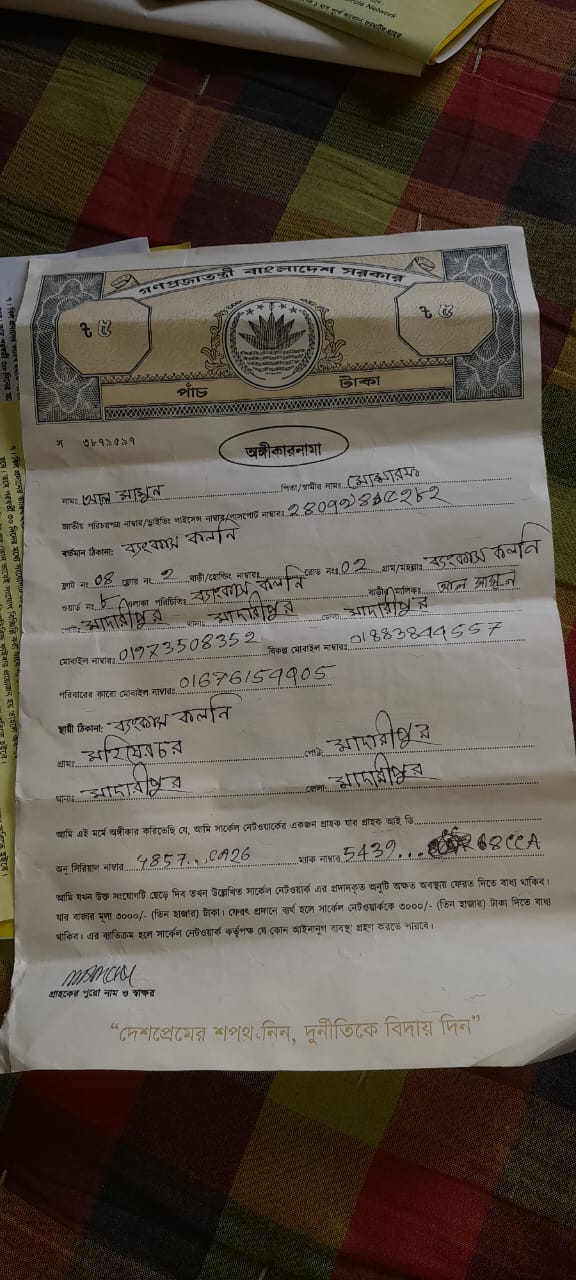 গণপ্রজাতন্ত্রী বাংলাদেশ সরকার
৳ ৫ ৳ ৫
পাঁচ টাকা
স ৩৮৭৯৫৯৭
অঙ্গীকারনামা
নাম: আল মামুন পিতা/স্বামীর নাম:
জাতীয় পরিচয়পত্র নাম্বার/ড্রাইভিং লাইসেন্স নাম্বার/পাসপোর্ট নাম্বার:
বর্তমান ঠিকানা: ব্যংকাস কলনি
ফ্লাট নং 08 ফ্লোর নং 2 বাড়ী/হোল্ডিং নাম্বার: রোড নংঃ 02 গ্রাম/মহল্লা: ব্যংকাস কলনি
ওয়ার্ড নং ৮ এলাকা পরিচিতি: ব্যংকাস কলনি বাড়ী মালিক: আল মামুন
পোষ্ট: মাদারীপুর থানা: মাদারীপুর জেলা: মাদারীপুর
মোবাইল নাম্বার: 01973508352 বিকল্প মোবাইল নাম্বার: 01883844557
পরিবারের কারো মোবাইল নাম্বার: 01676154905
স্থায়ী ঠিকানা: ব্যংকাস কলনি
গ্রাম: মহিষেরচর পোষ্ট: মাদারীপুর
থানা: মাদারীপুর জেলা: মাদারীপুর
আমি এই মর্মে অঙ্গীকার করিতেছি যে, আমি সার্কেল নেটওয়ার্কের একজন গ্রাহক যার গ্রাহক আই ডি
অনু সিরিয়াল নাম্বার 4857...CA26 ম্যাক নাম্বার 5439... 68CCA
আমি যখন উক্ত সংযোগটি ছেড়ে দিব তখন উল্লেখিত সার্কেল নেটওয়ার্ক এর প্রদানকৃত অনুটি অক্ষত অবস্থায় ফেরত দিতে বাধ্য থাকিব।
যার বাজার মূল্য ৩০০০/- (তিন হাজার) টাকা। ফেরৎ প্রদানে ব্যর্থ হলে সার্কেল নেটওয়ার্ককে ৩০০০/- (তিন হাজার) টাকা দিতে বাধ্য
থাকিব। এর ব্যতিক্রম হলে সার্কেল নেটওয়ার্ক কর্তৃপক্ষ যে কোন আইনানুগ ব্যবস্থা গ্রহণ করতে পারবে।
গ্রাহকের পুরো নাম ও স্বাক্ষর
“দেশপ্রেমের শপথ নিন, দুর্নীতিকে বিদায় দিন”